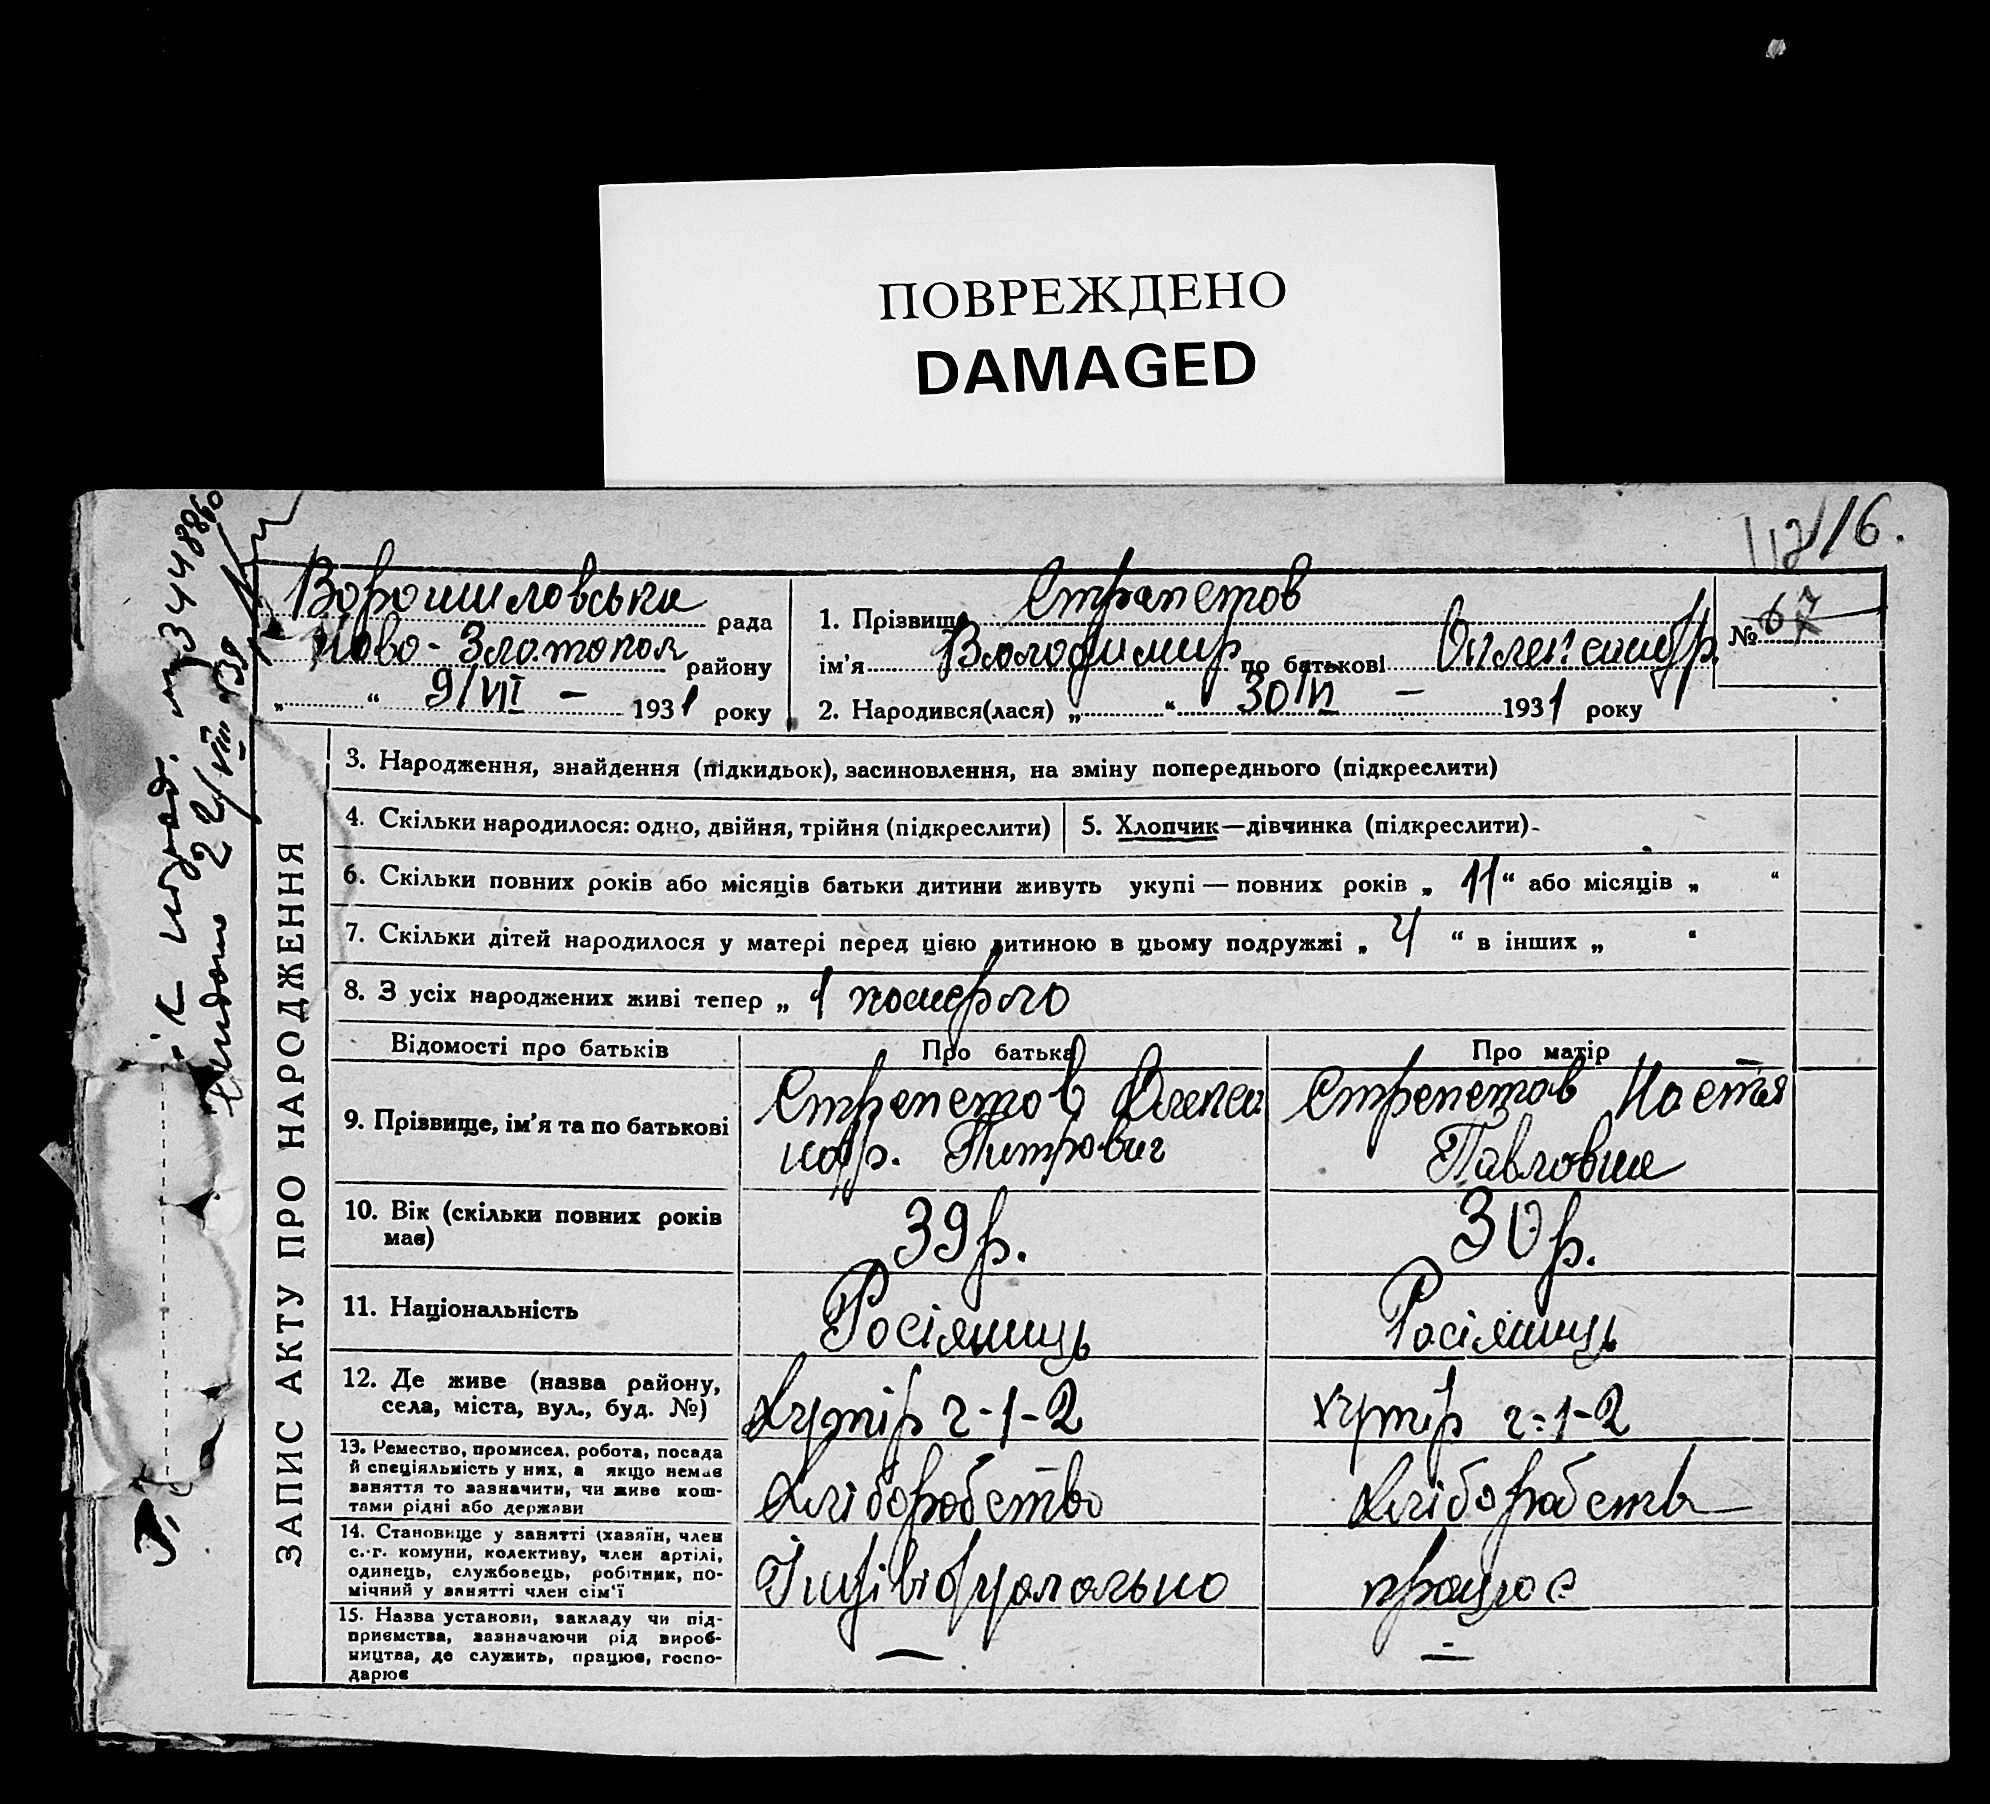 ПОВРЕЖДЕНО
DAMAGED
16.
Ворошиловська рада
Ново-Златопол району
„ “ 9/VII – 1931 року
1. Прізвище Страпетов
ім’я Володимир по батькові Олександр.
2. Народився(лася) „ “ 30/VI – 1931 року
№ 67
ЗАПИС АКТУ ПРО НАРОДЖЕННЯ
3. Народження, знайдення (підкидьок), засиновлення, на зміну попереднього (підкреслити)
4. Скільки народилося: одно, двійня, трійня (підкреслити)
5. Хлопчик—дівчинка (підкреслити)
6. Скільки повних років або місяців батьки дитини живуть укупі — повних років „ 11 “ або місяців „ “
7. Скільки дітей народилося у матері перед цією дитиною в цьому подружжі „ 4 “ в інших „ “
8. З усіх народжених живі тепер „ 1 померло
Відомості про батьків
Про батька
Про матір
9. Прізвище, ім’я та по батькові
Стрепетов Олекса
ндр. Питрович
Стрепетов Настя
Павловна
10. Вік (скільки повних років
має)
39 р.
30 р.
11. Національність
Росіяниць
Росіяниць
12. Де живе (назва району,
села, міста, вул., буд. №)
Хутір г-1-2
хутір г-1-2
13. Ремество, промисел, робота, посада
й спеціяльність у них, а якщо немає
заняття то зазначити, чи живе кош-
тами рідні або держави
Хліборобство
Хліборобств
14. Становище у занятті (хазяїн, член
с.-г. комуни, колективу, член артілі,
одинець, службовець, робітник, по-
мічний у занятті член сім’ї
Індівідуально
працює
15. Назва установи, закладу чи під-
приємства, зазначаючи рід вироб-
ництва, де служить, працює, госпо-
дарює
—
—